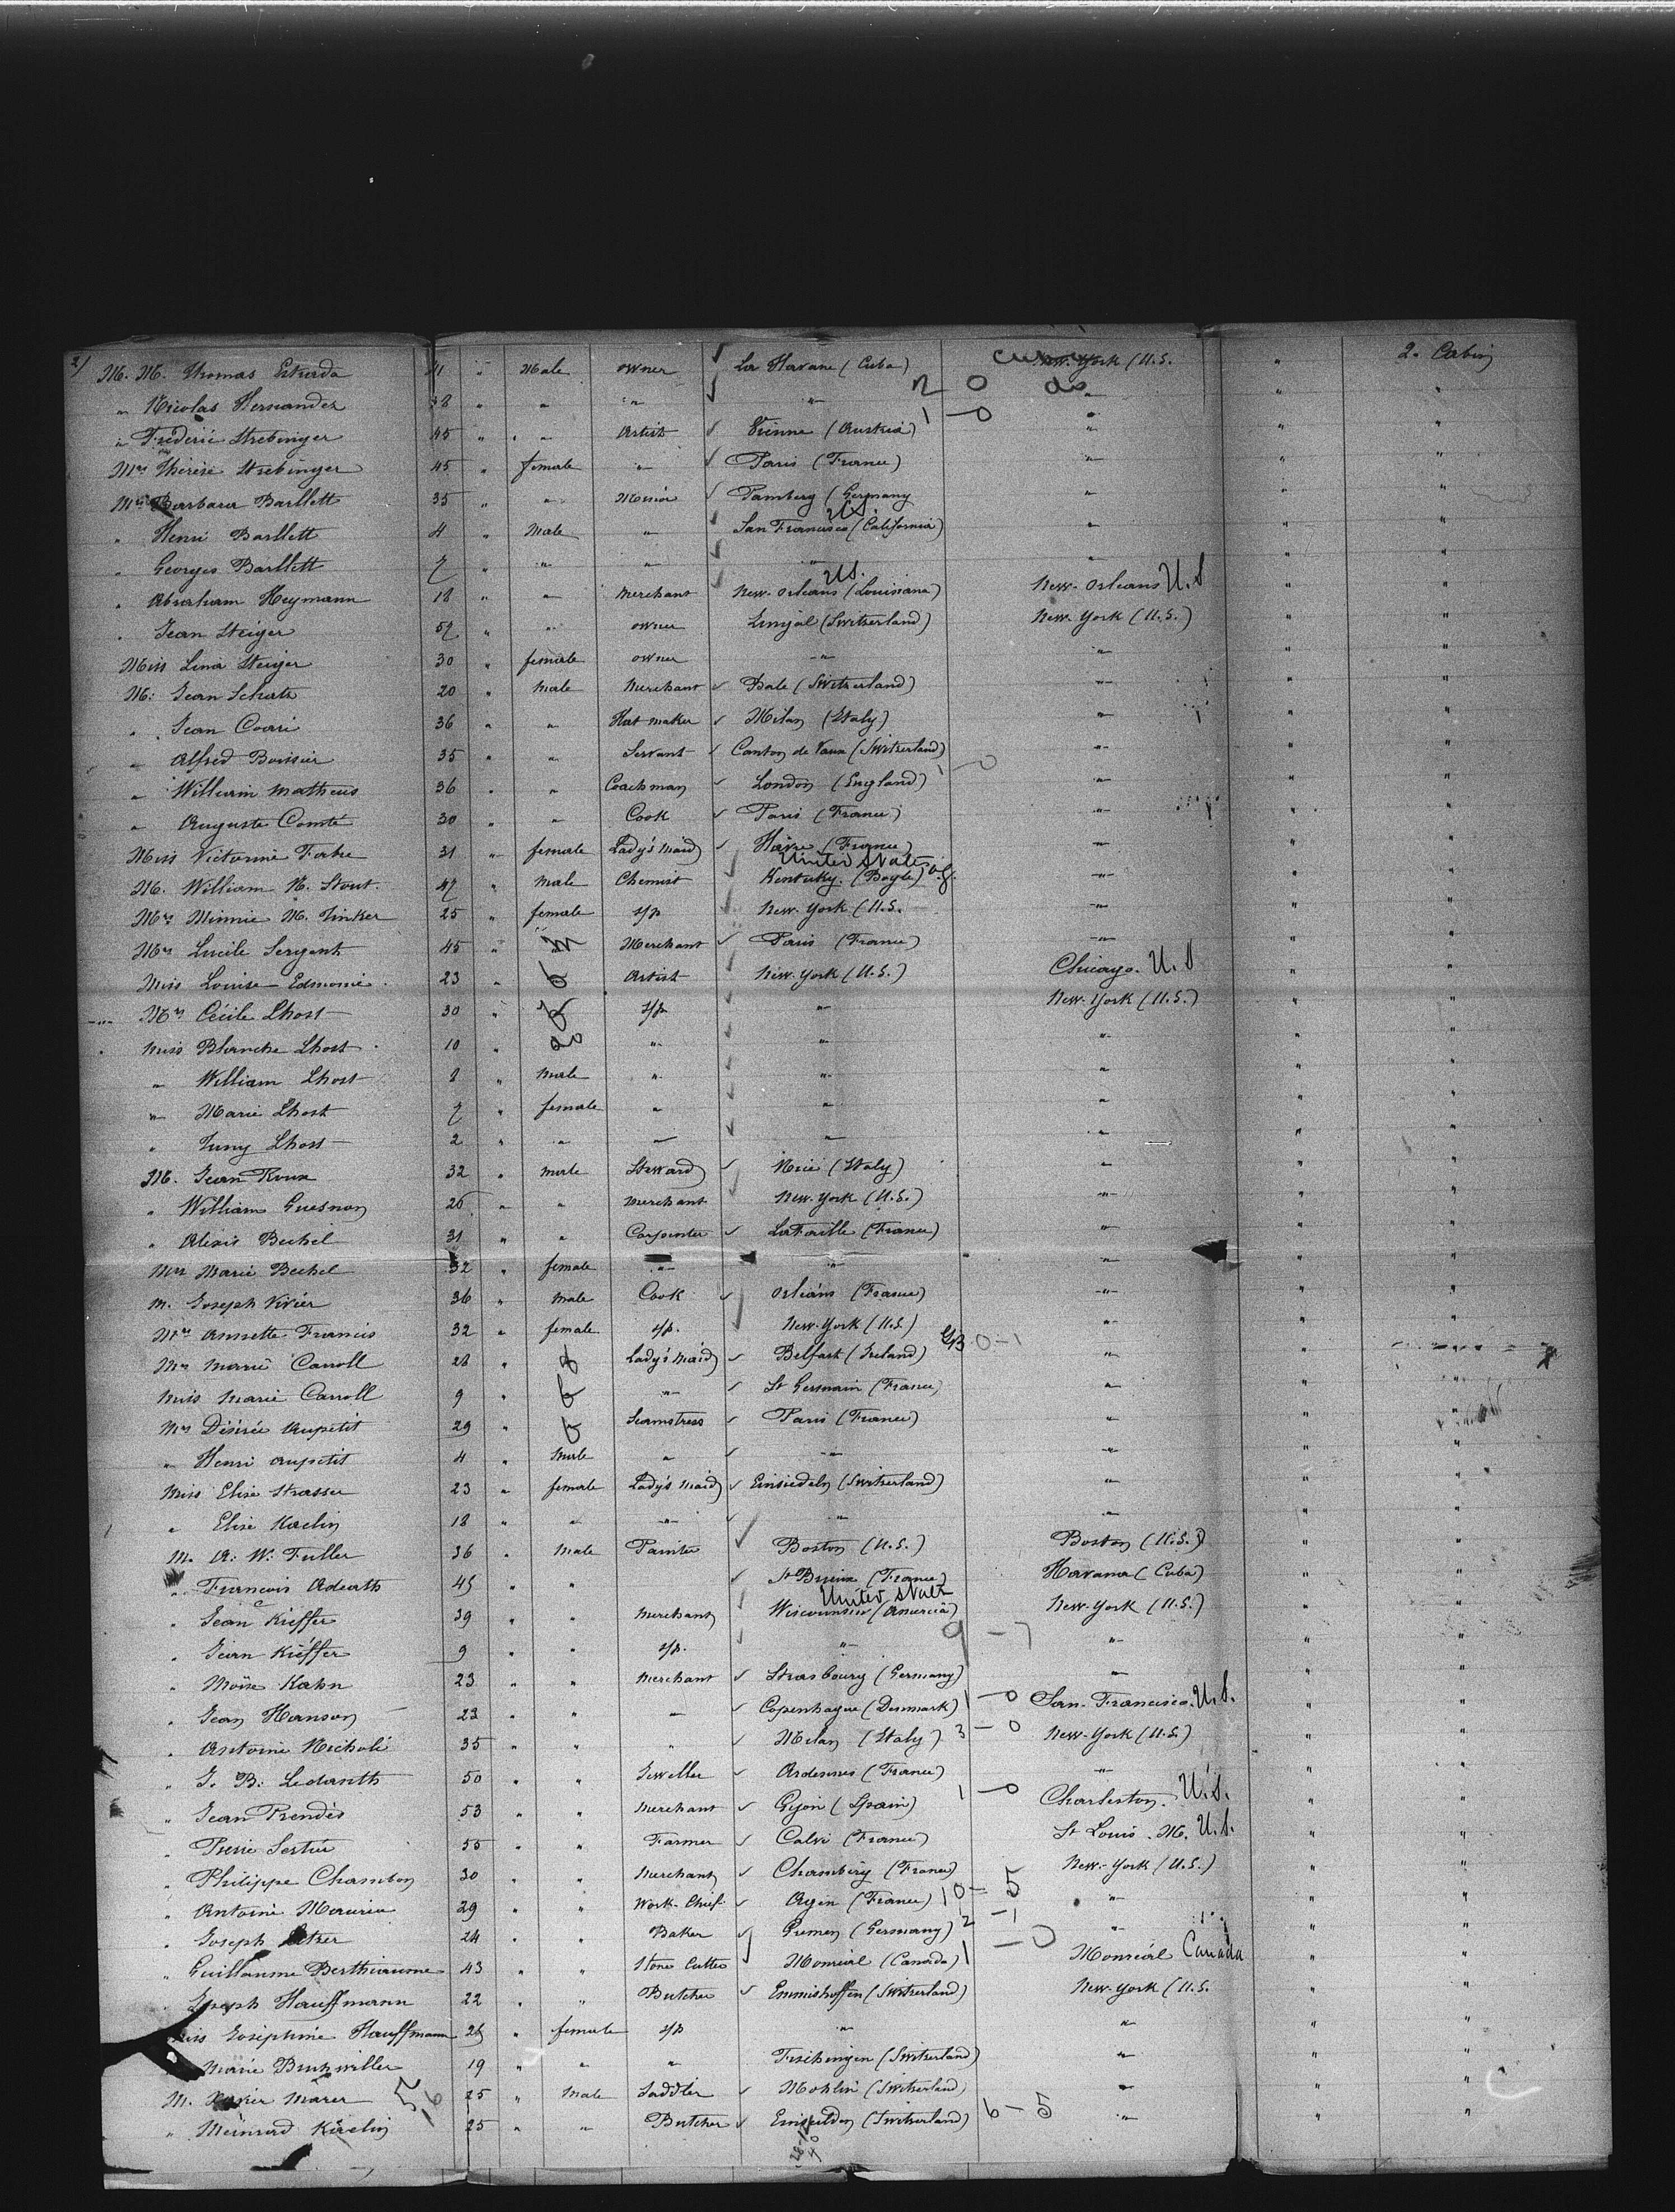 2/ M. M. Thomas Estrada 41 " Male owner La Havane (Cuba) New-York (U.S. " 2. Cabin
" Nicolas Hernandez 38 " " " " 2 0 do " " "
" Fréderic Strebinger 45 " " Artist Vienne (Austria) 1 - 0 " " "
Mrs Thérèse Strebinger 45 " female " Paris (France) " " "
Mrs Barbara Barllett 35 " " (Germany " " "
" Henri Barllett 4 " Male " San Francisco (California) U.S. " " "
" Georges Barllett 7 " " " " " " "
" Abraham Heymann 18 " " Merchant New-Orleans (Louisiana) U.S. New-Orleans U.S " "
" Jean Steiger 57 " " owner (Switzerland) New-York (U.S.) " "
Miss Lina Steiger 30 " female owner " " " "
M. Jean Schatz 20 " Male Merchant Bale (Switzerland) " " "
" Jean Coari 36 " " Hat maker Milan (Italy) " " "
" Alfred Boissier 35 " " Servant Canton de Vaux (Switzerland) " " "
" William Matheus 36 " " Coachman London (England) 1 - 0 " " "
" Auguste Comte 30 " " Cook Paris (France) " " "
Miss Victorine Fabre 31 " female Lady's Maid Havre (France) " " "
M. William N. Stout 47 " Male Chemist Kentuky (Boyle) United States " " "
Mrs Minnie M. Tinker 25 " female s/p New-York (U.S. " " "
Mrs Lucile Sergent 45 " " Merchant Paris (France) " " "
Miss Louise Edmonie 23 " Artist New-York (U.S.) Chicago. U.S " "
Mrs Cécile Lhost 30 " s/p " New-York (U.S.) " "
Miss Blanche Lhost 10 " do " " " " "
" William Lhost 8 " Male " " " " "
" Marie Lhost 7 " female " " " " "
" Lhost 2 " " " " " " "
M. Jean Roux 32 " male Steward (Italy) " " "
" William Guesnon 26 " " Merchant New-York (U.S.) " " "
" Alexis Bechel 31 " " Carpenter (France) " " "
Mrs Marie Bechel 32 " female " " " " "
M. Joseph Vivier 36 " Male Cook Orléans (France) " " "
Mrs Annette Francis 32 " female s/p. New-York (U.S.) " " "
Mrs Marie Carroll 28 " Lady's Maid Belfast (Ireland) GB 0-1 " " "
Miss Marie Carroll 9 " " St Germain (France) " " "
Mrs Désirée Aupetit 29 " Seamstress Paris (France) " " "
" Henri Aupetit 4 " Male " " " " "
Miss Elise Strasser 23 " female Lady's Maid Einsiedeln (Switzerland) " " "
" Elise Kaelin 18 " " " " " " "
M. A. W. Fuller 36 " Male Painter Boston (U.S.) Boston (U.S.) " "
" Francois 45 " " St Brieux (France) Havana (Cuba) " "
" Jean Kieffer 39 " " Merchant (America) United States New-York (U.S.) " "
" Jean Kieffer 9 " " s/p. " 9 - 7 " " "
" Moïse Kahn 23 " " Merchant Strasbourg (Germany) " " "
" Jean Hanson 23 " " " Copenhague (Denmark) 1 - 0 San-Francisco U.S. " "
" Antoine Nicholi 35 " " " Milan (Italy) 3 - 0 New-York (U.S.) " "
" J. B. Ledanth 50 " " Jeweller Ardennes (France) " " "
" Jean Prendès 53 " " Merchant Gijon (Spain) 1 - 0 Charleston. U.S. " "
" Pierre 55 " " Farmer Calvi (France) St Louis. Mo. U.S. " "
" Philippe Chambon 30 " " Merchant Chambéry (France) New-York (U.S.) " "
" Antoine 29 " " Work-Chief Agen (France) 10 - 5 " " "
" Joseph 24 " " Baker Bremen (Germany) 2 - 1 " " "
" Guillaume Berthiaume 43 " " Stone Cutter Monréal (Canada) 1 - 0 Monréal Canada " "
Joseph Hauffmann 22 " " Butcher Emmishoffen (Switzerland) New-York (U.S. " "
Miss Joséphine Hauffmann 26 " female s/p " " " "
Marie 19 " " " Fischingen (Switzerland) " " "
M. Xavier Marer 25 " Male Saddler Mohlin (Switzerland) " " "
" Meinrad Kaelin 25 " " Butcher (Switzerland) 6 - 5 " " "